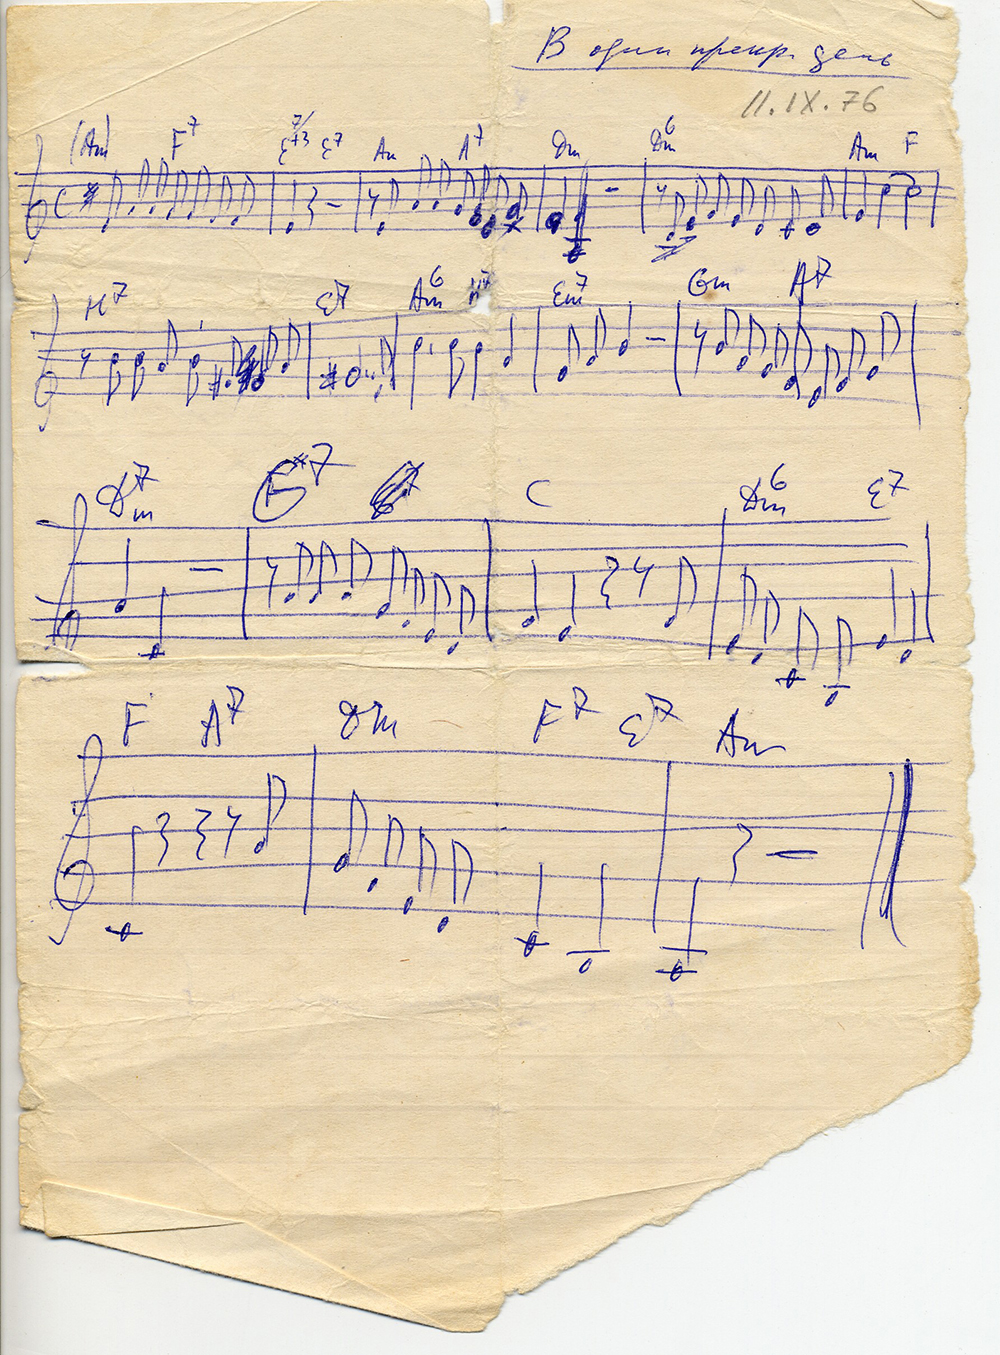 В один прекр. день
11.IX.76
(Am) F7 E7/+3 E7 Am A7 Dm Dm6 Am F
H7 E7 Am6 H7 Em7 Gm A7
Dm7 G7 C Dm6 E7
F A7 Dm F7 E7 Am